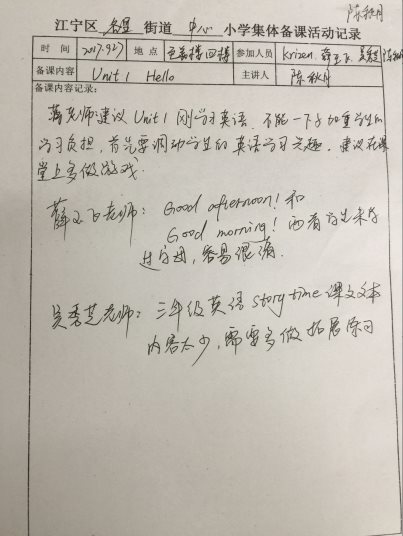 陈秋月
江宁区 街道 中心 小学集体备课活动记录
时 间 2017.9.27 地 点 四楼 参加人员 krizen. 薛玉飞 吴秀芝 陈秋月
备课内容 Unit 1 Hello 主讲人 陈秋月
备课内容记录:
蒋老师:建议Unit 1 刚学习英语,不能一下子加重学生的
学习负担,首先要调动学生的英语学习兴趣,建议在课
堂上多做游戏.
薛玉飞老师: Good afternoon! 和
Good morning! 两者学生未学
过字母,容易混淆.
吴秀芝老师: 三年级英语 story time 课文文本
内容太少,需要多做拓展练习